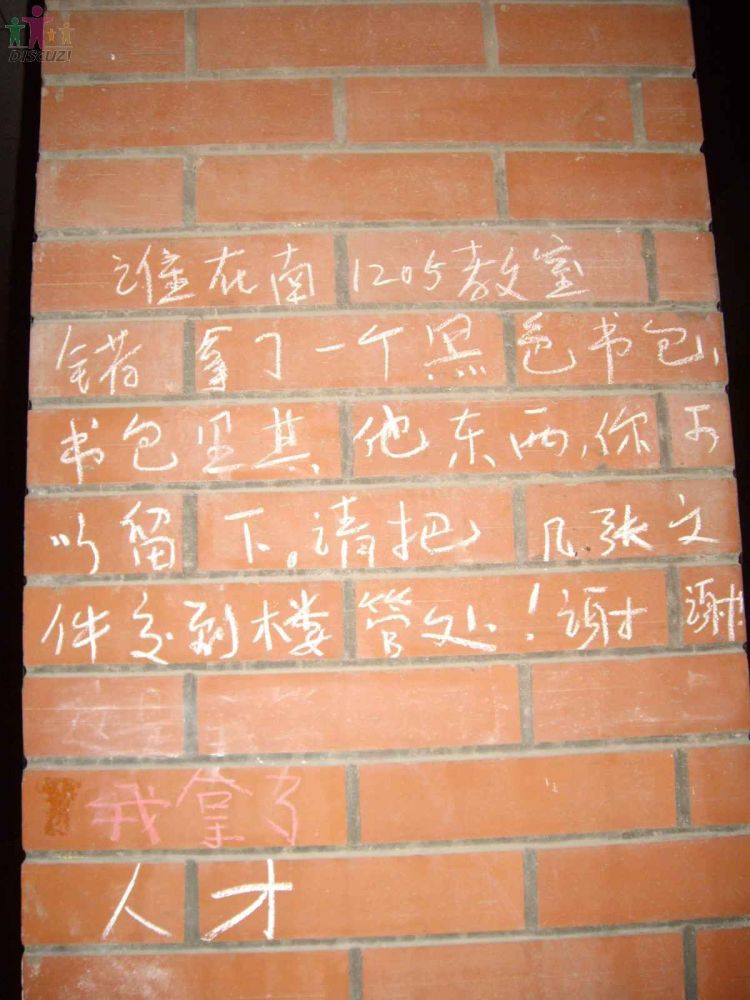 DISCUZ!
谁在南1205教室
错拿了一个黑色书包,
书包里其他东西,你可
以留下。请把几张文
件交到楼管处!谢谢
我拿了
人才